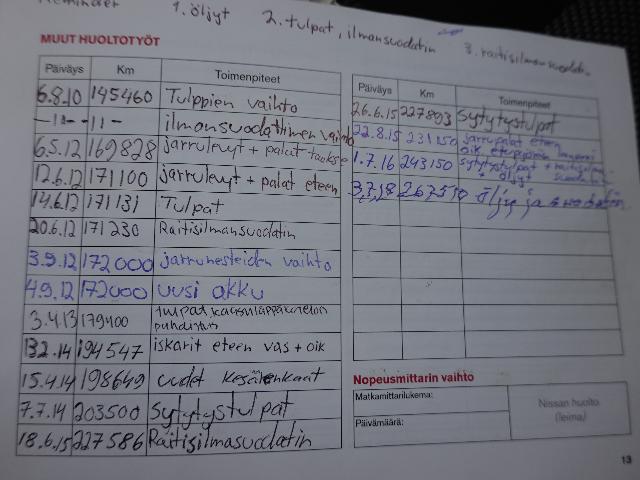 Reminder 1. öljyt 2. tulpat, ilmansuodatin 3. raitisilmansuodat.
MUUT HUOLTOTYÖT
Päiväys Km Toimenpiteet
6.8.10 145460 Tulppien vaihto
—11— —11— ilmansuodattimen vaihto
6.5.12 169828 jarrulevyt + palat taakse
12.6.12 171100 jarrulevyt + palat eteen
14.6.12 171131 Tulpat
20.6.12 171230 Raitisilmansuodatin
3.9.12 172000 jarrunesteiden vaihto
4.9.12 172000 uusi akku
3.4.13 179400 tulpat, kaasuläppäkotelon
puhdistus
13.2.14 194547 iskarit eteen vas + oik
15.4.14 198649 uudet kesärenkaat
7.7.14 203500 Sytytystulpat
18.6.15 227586 Raitisilmasuodatin
Päiväys Km Toimenpiteet
26.6.15 227893 Sytytystulpat
22.8.15 231150 jarrupalat eteen
oik etupyörän
1.7.16 243150 Sytytystulpat + raitisilma
suodatin
+ öljyt
3.7.18 267510 öljy ja suodatin
Nopeusmittarin vaihto
Matkamittarilukema:
Päivämäärä:
Nissan huolto
(leima)
13